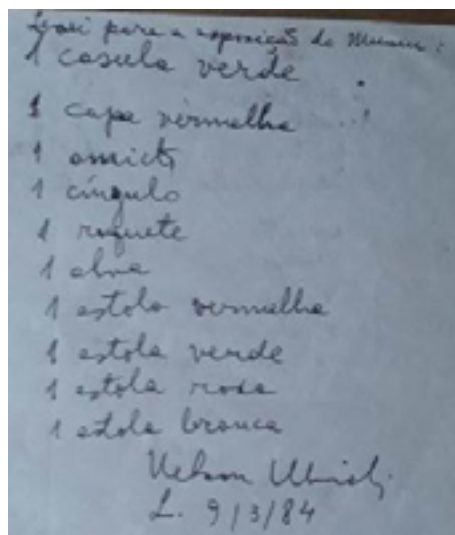 para a exposição do Museu:
1 casula verde
1 capa vermelha
1 amicto
1 cíngulo
1 roquete
1 alva
1 estola vermelha
1 estola verde
1 estola rosa
1 estola branca
Nelson
L. 9/3/84